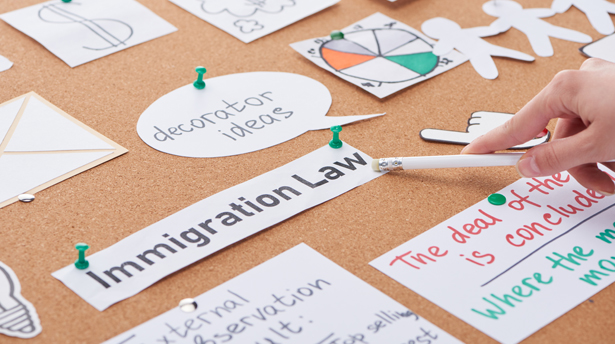 decorator
ideas
Immigration Law
The deal of the
is conclude
Where the m
External
observation
Top selling